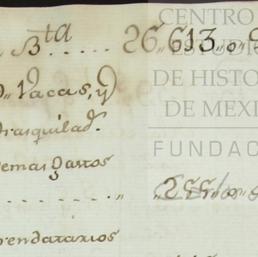 B.ta ..... 26,,613,,0,,
Vacas, y
trasquilad.s
demas gastos
........ ,, 255,,0,,
rendatarios
CENTRO
ESTUDIO
DE HISTO
DE MEXI
FUNDAC